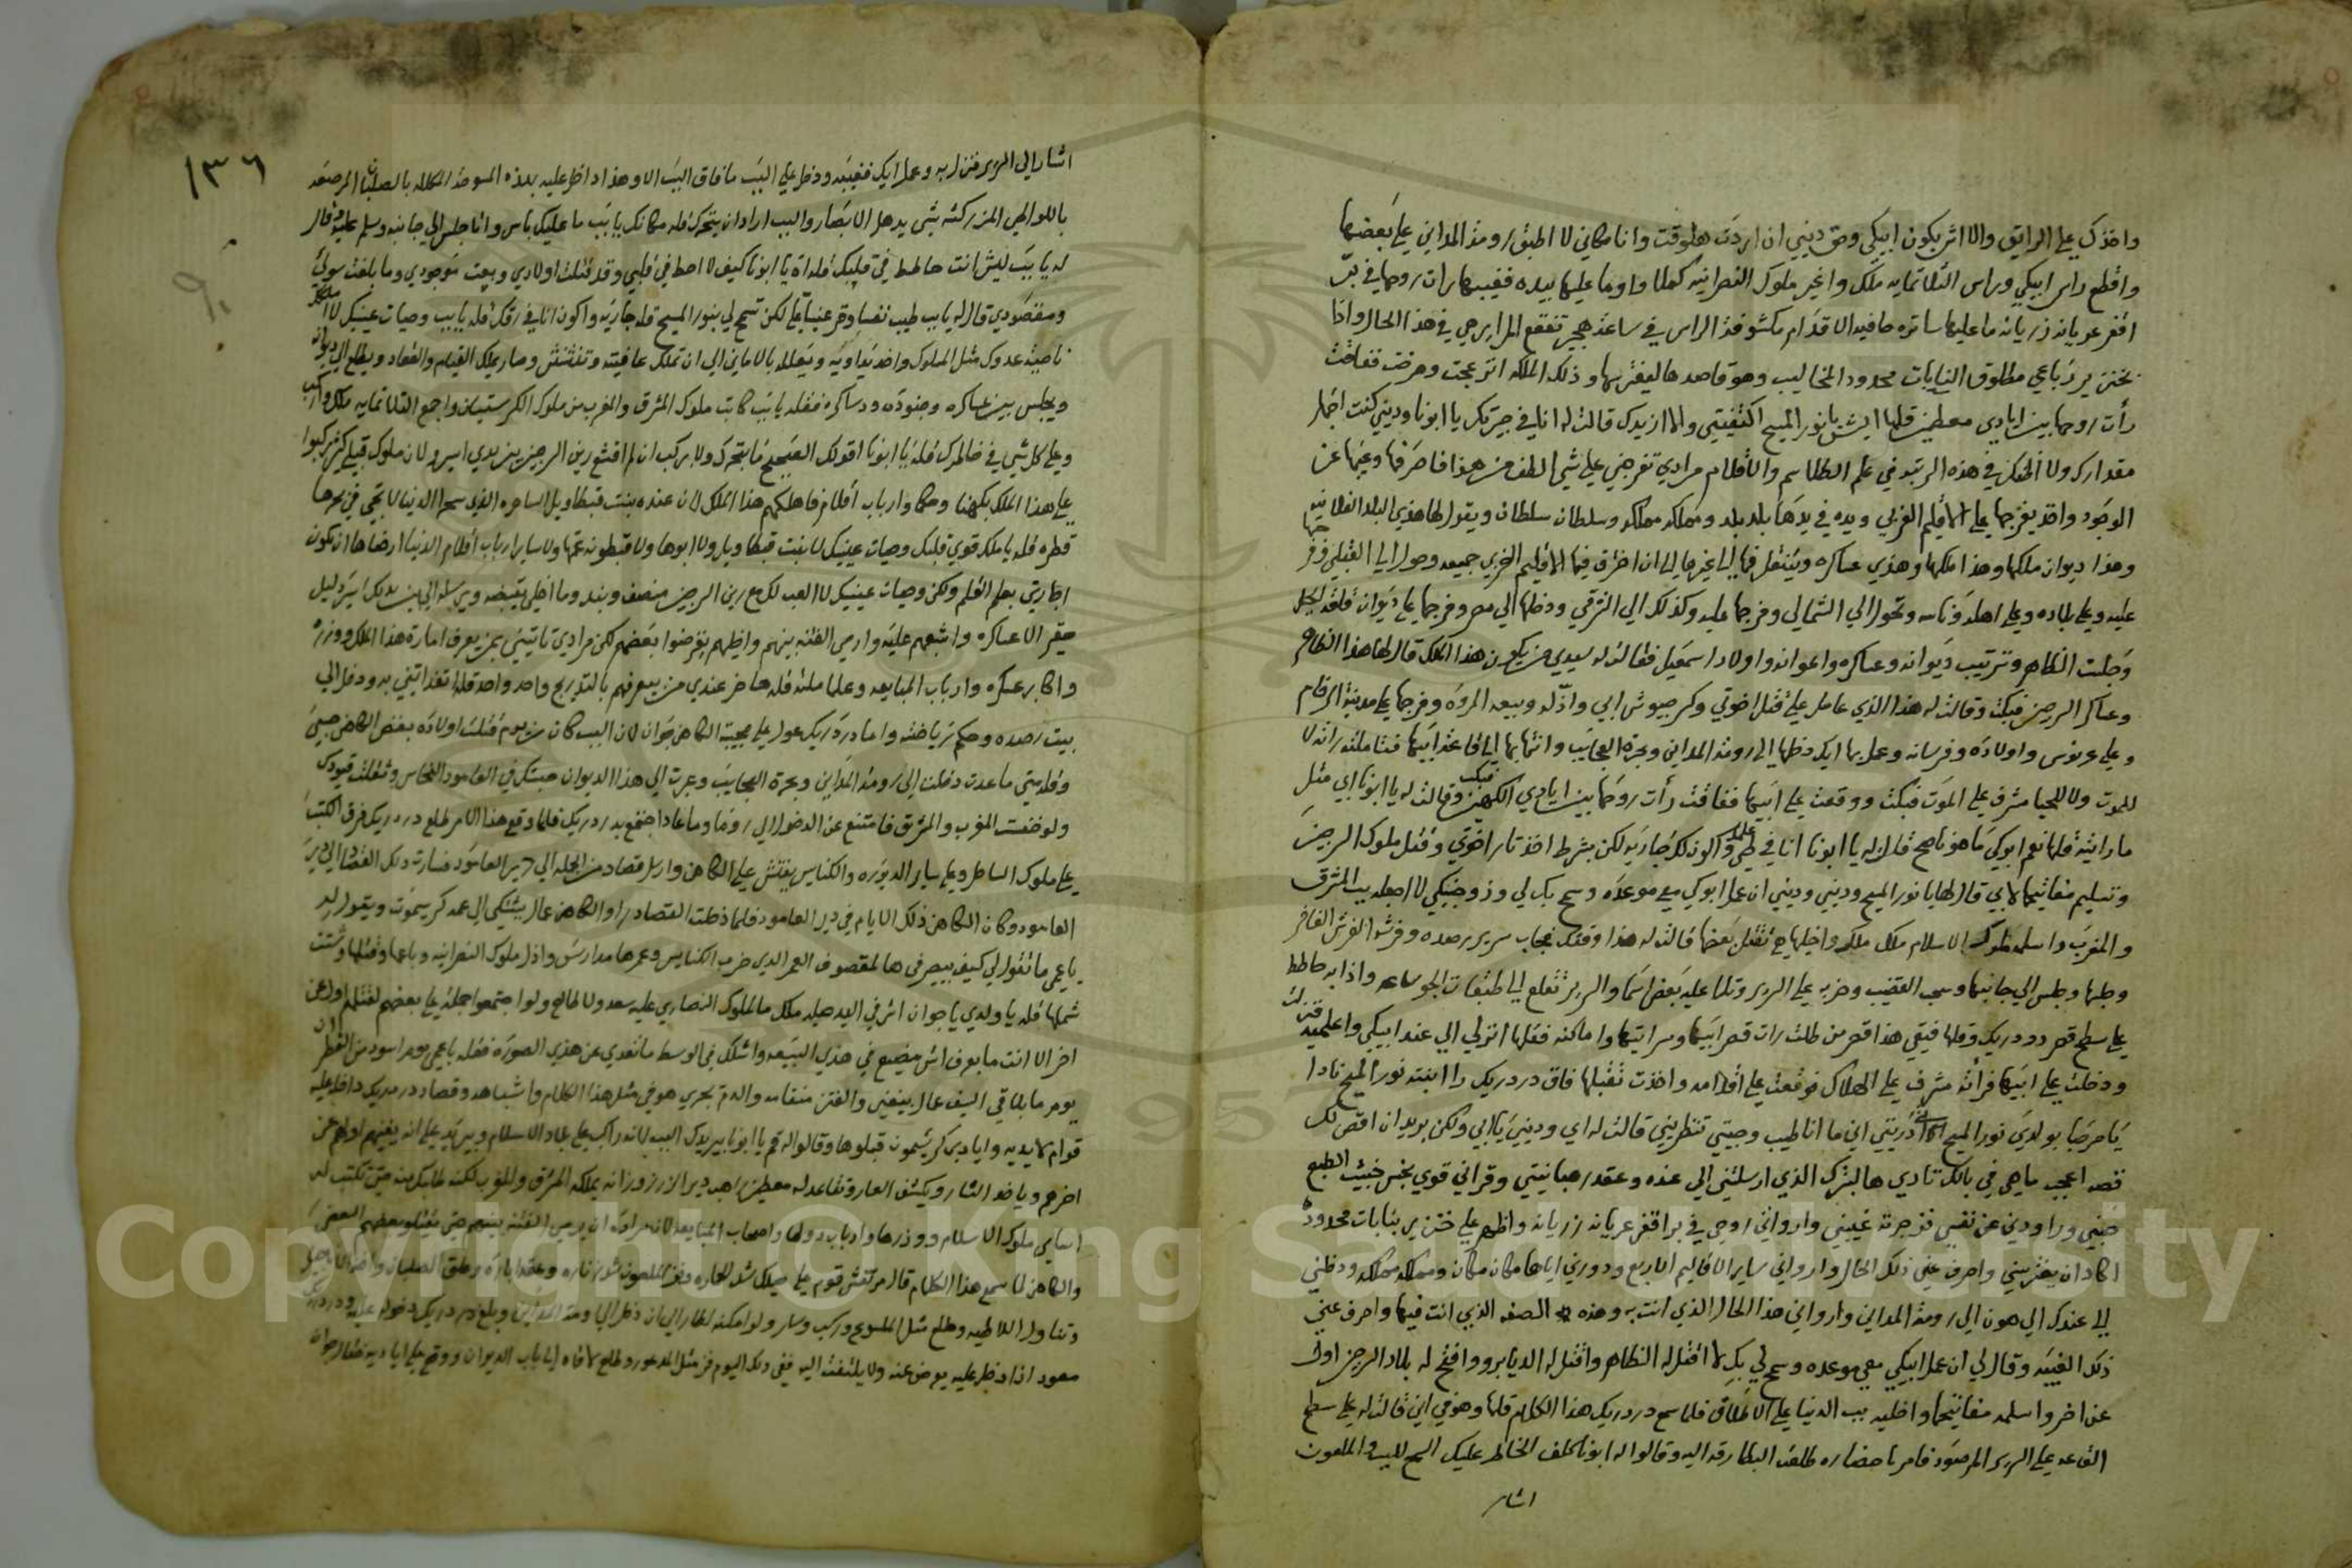 واخذكي علي الرايق والا اش يكون ابيكي وحق ديني ان اردت هلوقت وانا مكاني لا اطبق رومة المداين علي بعضها
واقطع راس ابيكي وراس الثلاثمايه ملك واغير ملوك النصرانيه كملا واوما عليها بيده فغيبها رات روحها في بر
اقفر عريانه زريانه ما عليها ساتره حافية الاقدام مكشوفة الراس في ساعة هجير تفقع المراير هي في هذا الحال واذا
بخنزير رباعي مطلوق النيابات محدود المخاليب وهو قاصدها ليفترسها و ذلك الملكه انزعجت وصرخت ففاقت
رأت روحها بين ايادي معطين قلها ايش يا نور المسيح اكتفيتي والا ازيدك قالت له انا في جيرتك يا ابونا وديني كنت اخمار
مقدارك ولا اظنك في هذه الرتبه في علم الطلاسم والاقلام مرادي تفرجني علي شي الطف من هذا فاصرفها وغيبها عن
الوجود واخد يفرجها علي الاقليم الغربي ويده في يدها بلد بلد ومملكه مملكه وسلطان سلطان ويقول لها هذي البلد الفلانيه
وهذا ديوان ملكها وهذا ملكها وهذي عساكره وينتقل فيها الي غيرها الي ان اخرق فيها الاقليم الغربي جميعه وحول الي القبلي وفر
عليه وعلي بلاده وعلي اهله وناسه وتحول الي الشمالي وفرجها عليه وكذلك الي الشرقي ودخلها الي مصر وفرجها علي ديوان قلعة الجبل
وجلست الظاهر وترتيب ديوانه وعساكره واعوانه واولاد اسمعيل فقالت له سيدي من يكون هذا الملك قال لها هذا الظاهر
وعساكر الرجين فبكت وقالت له هذا الذي عامل علي قتل اخوتي وكسر جيوش ابي واذله وبيعه المروه وفرجها علي مدينة الرخام
وعلي عرنوس واولاده وفرسانه وعمل بها ايك دخلها الي رومة المداين وبحرة العجايب واتي بها الي قاعة ابيها فتاملته رانه لا
للموت ولا للحيا مشرف علي الموت فبكت ووقعت علي ابيها ففاقت رأت روحها بين ايادي الكهين فبكت وقالت له يا ابونا ابي مثل
ما رايته قلها نعم ابوكي ما هو ناصح قالت له يا ابونا انا في علي طبيه واكون لك جاريه لكن بشرط اخذ تار اخوتي وقتل ملوك الرجين
وتسليم مفاتيحها لابي قال لها يا نور المسيح وديني وديني ان عمل ابوكي معي موعده وسمح بك لي وزوجنيكي لا اجعله بب المشرق
والمغرب واسلمه ملوك الاسلام ملك ملك واخليها تقتل بعضها قالت له هذا وقتك فجاب سرير رصده وفرشه الفرش الفاخر
وجلها وجلس الي جانبها وسحب القضيب وضربه علي السرير وتلا عليه بعض اسما والسرير تقلع الي طبقات الجو ساعه واذا به حاطط
علي سطح قصر دودريك وقلها فيقي هذا قصر من طلت رات قصر ابيها وسرايتها واماكنه فقلها انزلي الي عند ابيكي واعلميه فنزلت
ودخلت علي ابيها فراته مشرف علي الهلاك فوقعت علي اقدامه واخذت تقبلها فاق دردريك را ابنته نور المسيح نادا
يا مرحبا بولدي نور المسيح اذريتي اني ما انا طيب وجيتي تنظريني قالت له اي وديني يا ابي ولكن بريد ان اقص لك
قصه اعجب ما هي في بالك تادي هالبترك الذي ارسلتني الي عنده وعقد رهبانيتي وقراني قوي نجس خبيث الطبع
حبني وراودني عن نفسي فزجرته غيبني واروانى روحي في بر اقفر عريانه زريانه واظهر علي خنزير بنيابات محدوده
اكاد ان يفترسني واصرف عني ذلك الحال وارواني ساير الاقاليم الاربع ودورني اياها مكان مكان ومملكه مملكه ودخلني
الي عندك الي هون الي رومة المداين وارواني هذا الحال الذي انت به وهذه الصفه الذي انت فيها واصرف عني
ذلك الغيبه وقال لي ان عمل ابيكي معي موعده وسمح لي بك لا اقتل له الظاهر واقتل له الديابرو وافتح له بلاد الرجين اول
عن اخر واسلمه مفاتيحها واخليه بب الدنيا علي الاطلاق فلما سمع دردريك هذا الكلام قلها وهو في اين قالت له علي سطح
القاعه علي السرير المرصود فامر باحضاره طلعت البطارقه اليه وقالوا له ابونا كلف الخاطر عليك السمح للبب والملعون
اشار
١٣٦
اشار الي السرير فنزل به وعمل ايك فغيبه ودخل علي البب ما فاق البب الا وهذا داخل عليه بهذه المسوخة الكلاله بالصلبان المرصعه
باللوالهي المزركشه بشي يدهل الابصار والبب اراد ان يتحرك قله مكانك يا بب ما عليك باس وانا جلس الي جانبه وسلم عليه وقال
له يا بب ليش انت حاطط في قلبك قلداه يا ابونا كيف لا احط في قلبي وقد قتلت اولادي وبيعت موجودي وما بلغت سولي
ومقصودي قال له يا بب طيب نفسا وقر عينا علي لكن تسمح لي بنور المسيح قله جاريه واكون انا في رقك قله يا بب وحيات عينيك لا املكك
ناصية عدوك مثل الملوك واخد يداويه ويعلله بالاماني الي ان تملك عافيته وتنتش وصار يملك القيام والقعاد ويطلع الي ديوانه
ويجلس بين عساكره وجنوده ودساكره فقله يا بب كاتب ملوك المشرق والمغرب من ملوك الكرستيان واجمع الثلاثمايه ملك واركب
وعلي كل شي في خاطرك قله يا ابونا اقولك الصحيح ما بتحرك ولا بركب ان لم اقشع رين الرجين بين يدي اسير لان ملوك قبلي كتير ركبوا
علي هذا الملك بكهنا وحكما وارباب اقلام فاهلكهم هذا الملك لان عنده بنت قبطاويل الساحره الذي سحر الدنيا لا تجي في بحرها
قطره قله يا ملك قوي قلبك وحيات عينيك لا بنت قبطاويل ولا ابوها ولا قبطونه عمها ولا ساير ارباب اقلام الدنيا ارضاها ان تكون
اجاريتي بعلم القلم ولكن وحيات عينيك لا العب لك مع رين الرجين منصف وبند وما اخلي يقبضه ويرسله الي بين يديك اسير دليل
حقير الا عساكره واشبعهم عليه وارمي الفتنه بينهم واخليهم يقرضوا بعضهم لكن مرادي تاتيني بمن يعرف امارة هذا الملك ووزره
واكابر عسكره وارباب المبايعه وعلما ملته قله حاضر عندي من يعرفهم بالتدريج واحد واحد قله انفذ اتيني به ودخل الي
بيت رصده وحكم رياضته واما دردريك عول علي مجيبة الكاهن جوان لان البب كان من يوم قتلت اولاده بغض الكاهن جيسي
وقله متي ما عدت دخلت الي رومة المداين وبحرة العجايب وعبرت الي هذا الديوان حبستك في العامود النحاس وتقلت قيودك
ولو خفت المغرب والمشرق فامتنع عن الدخول الي روما وما عادا اجتمع بدردريك فلما وقع هذا الامر طلع دردريك فرق الكتب
علي ملوك الساحل وعلي ساير الديوره والكنايس يفتش علي الكاهن وارسل قصاد من الجمله الي دير العامود فسارت ذلك القصاد الي دير
العامود وكان الكاهن ذلك الايام في دير العامود فلما دخلت القصاد راو الكاهن عال بيشتكي الي عمه كرسيموت ويقول له
يا عمي ما تقول لي كيف بيصير في هالمقصوف العمر الذي خرب الكنايس وعمرها مدارس واذل ملوك النصرانيه وباعها وقتلها وشتت
شملها قله يا ولدي يا جوان اش في اليد حيله ملك ما لملوك النصاري عليه سعد ولا طالع ولو اجتمعوا جملة علي بعضهم لقتلهم اول عن
اخر الا انت ما بعرف اش بيضيع في هذي البيعه واشكك في الوسط ما تعدي عن هذي الصوره فقله يا عمي يوم اسود من القطران
يوم ما بلاقي السيف عال بيغني والفتن منقامه والدم بجري هو في مثل هذا الكلام واشباهه وقصاد دردريك داخل عليه
قوام لايديه وايادي كرشيمون قبلوها وقالوا له قم يا ابونا بيريدك البب لانه راكب علي بلاد الاسلام وبيريد علي انه يفنيهم اولهم عن
اخرهم وياخد التار ويكشف العار وقاعد له معطين راهب دير الزرزور انه يملكه المشرق والمغرب لكنه طالبك منه حتي تكتب له
اسامي ملوك الاسلام ووزرها وارباب دولها واصحاب المبايعه لان مراده ان يرمي الفتنه بينهم حتي يقتلو بعضهم البعض
والكاهن لما سمع هذا الكلام قال مرتقش قوم علي حيلك شد الحاره وقفز الملعون شد زناره وعقد ايازه وعلق الصلبان واخد الاناجيل
وتناول اللاطيه وطلع مثل الملسوع وركب وسار ولو امكنه لطار الي ان دخل الي رومة المداين وبلغ دردريك دخوله عليه ودردريك
معود اذا دخل عليه يعرض عنه ولا يلتفت اليه ففي ذلك اليوم قز مثل المدعور وطلع لاقاه الي باب الديوان ووقع علي اياديه فقال جوان
Copyright © King Saud University